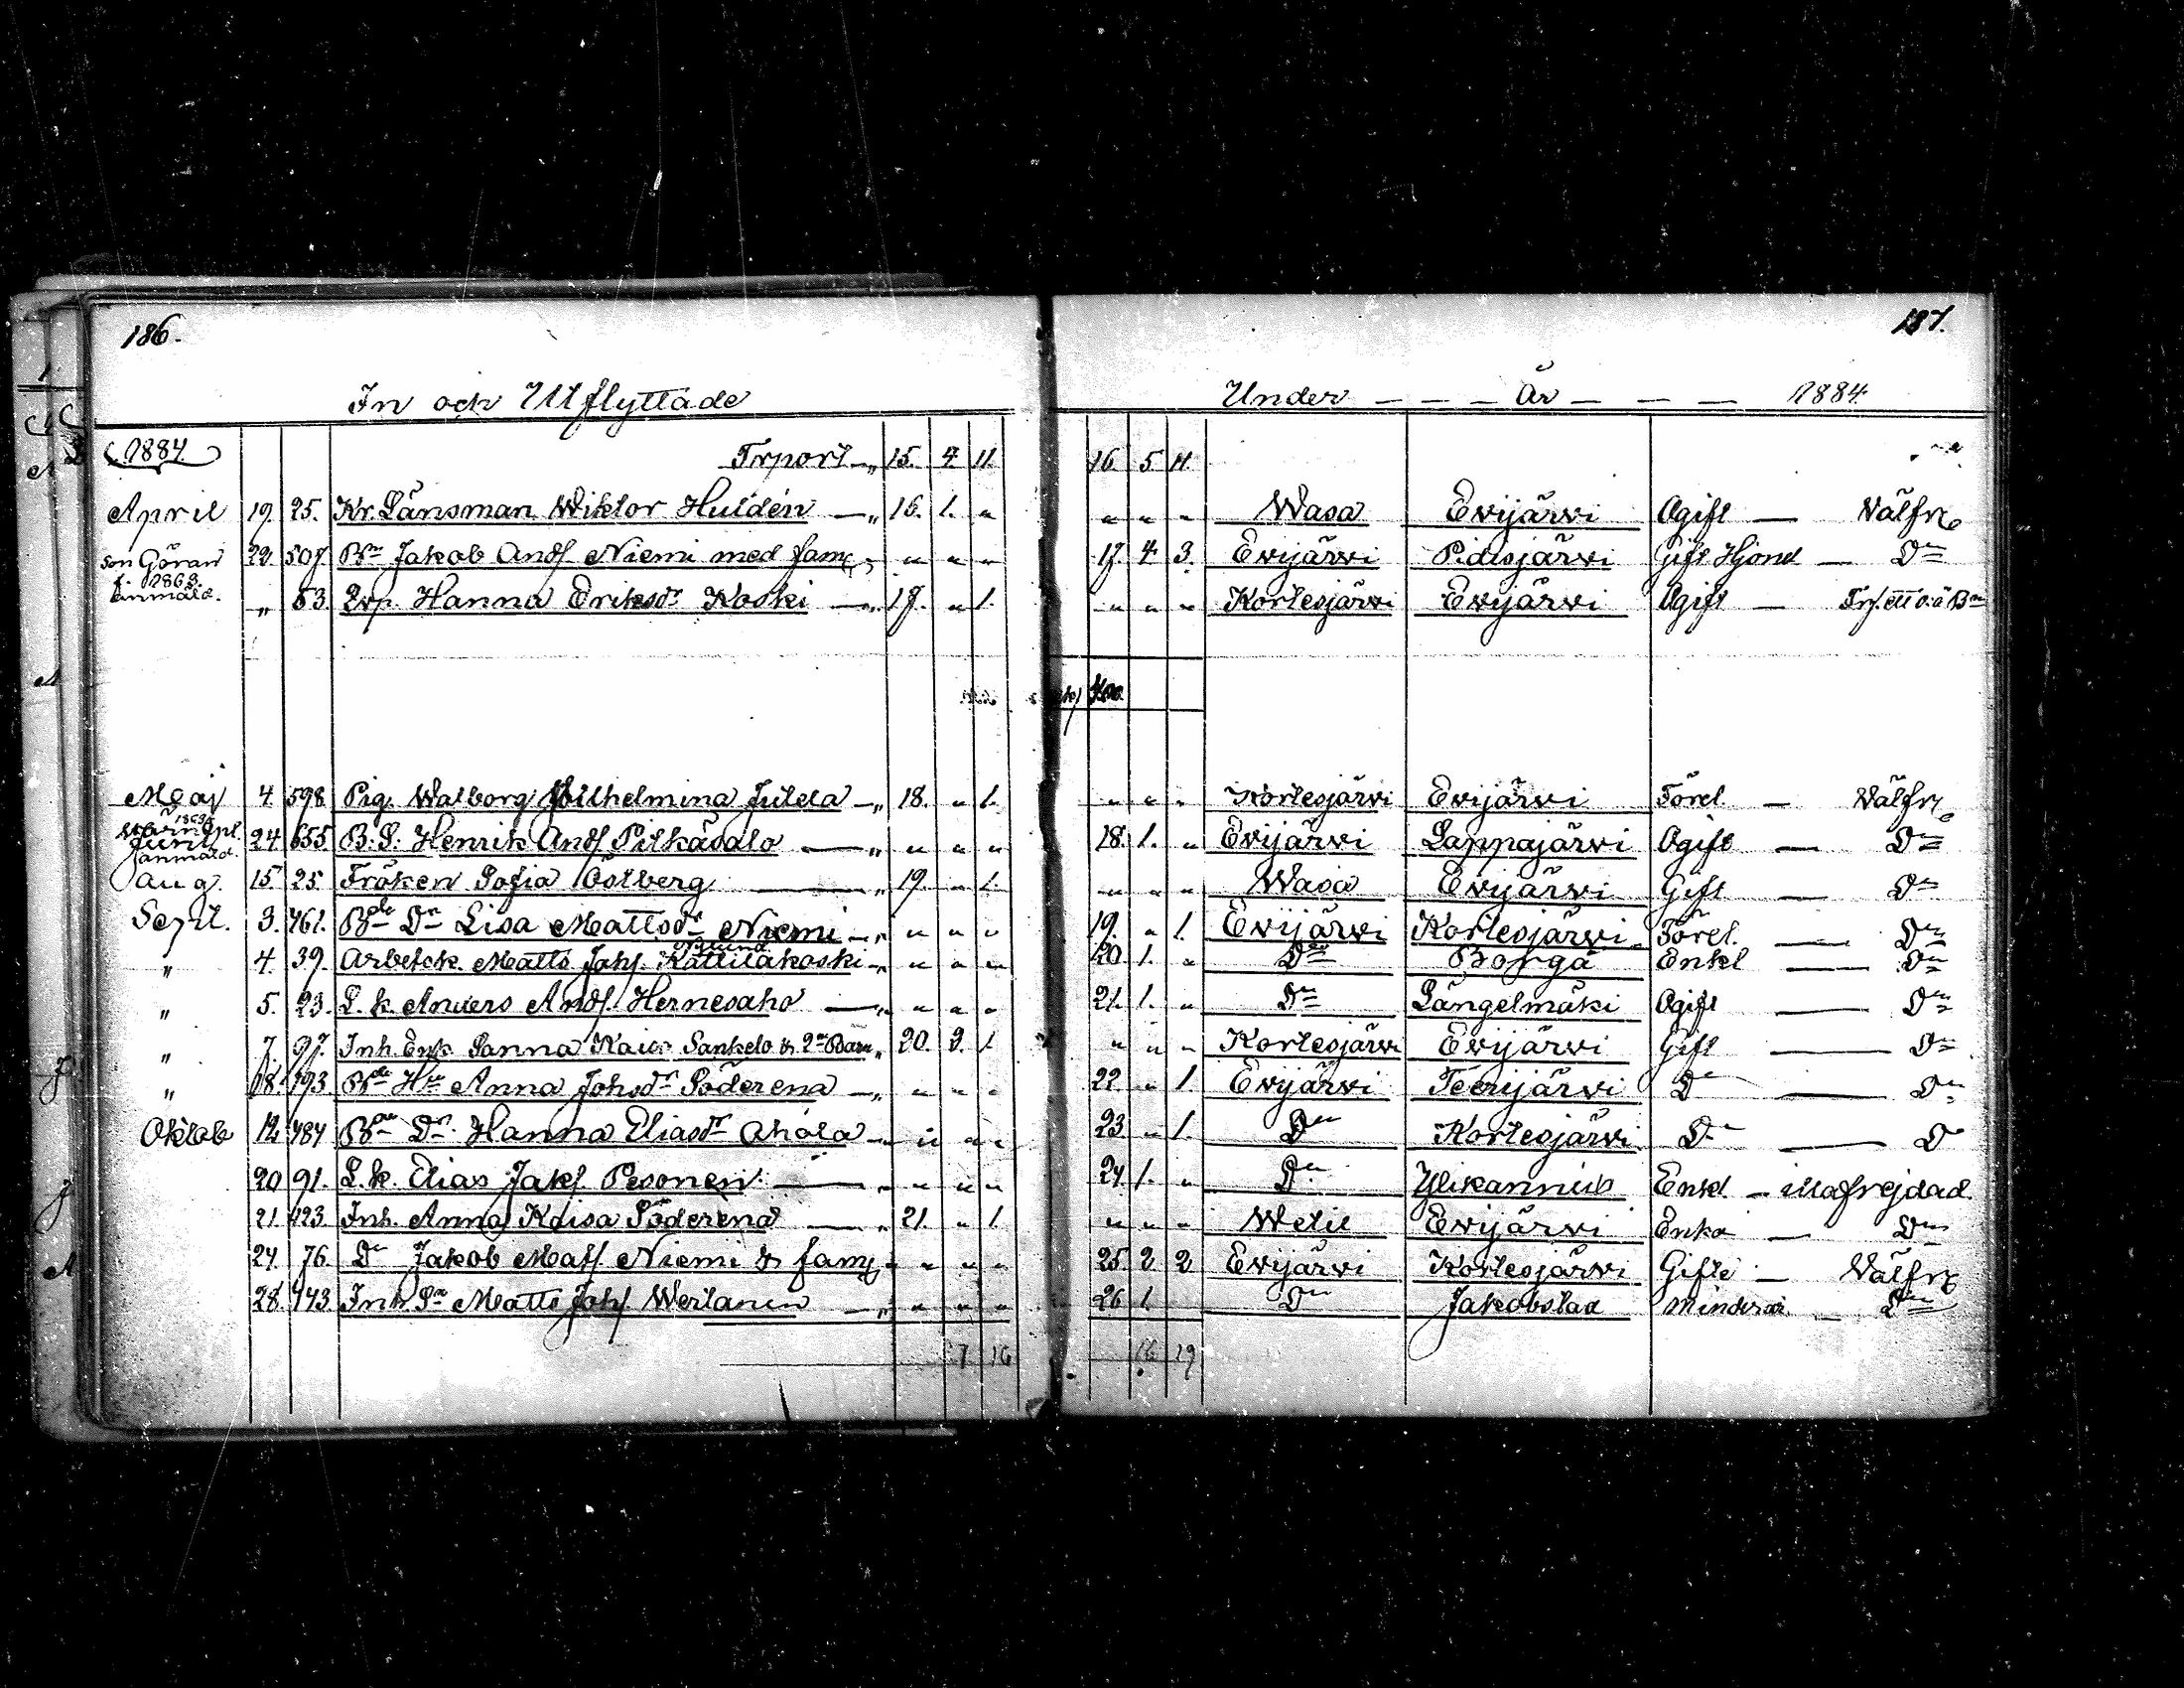 186.
187.
In och Utflyttade
Under — — — År — — — 1884
1884
Trport „ 15. 4 11. 16. 5 11.
April 19. 25. Kr. Länsman Wiktor Huldén — „ 16. 1. „ „ „ „ Wasa Evijärvi Ogift — Välfr
son Göran f. 1868. Anmäld.
22. 507. Bn Jakob Andf Niemi med fam „ „ „ 17. 4 3. Evijärvi Pidisjärvi Gift Hjond — Dn
„ 53. Hanna Eriksdr Koski — „ 17. „ 1. „ „ „ Kortesjärvi Evijärvi Ogift —
Maj 4. 598. Pig. Walborg Wilhelmina Julela — „ 18. „ 1. „ „ „ Kortesjärvi Evijärvi Förel. — Välfr
Juni anmäld. 24 655. B. S. Henrik Andf Pitkäsalo — „ „ „ „ 18. 1. „ Evijärvi Lappajärvi Ogift — Dn
Aug. 15 25. Fröken Sofia Östberg — „ 19. „ 1. „ „ „ Wasa Evijärvi Gift — Dn
Sept. 3. 761. Bde Dr Lisa Mattsdr Niemi — „ „ „ „ 19. „ 1. Evijärvi Kortesjärvi Förel. — Dn
Nylund
„ 4. 39. Arbetsk. Matts Johf. Kattilakoski „ „ „ „ 20. 1. „ Dn Borgå Enkl — Dn
„ 5. 23. L. k. Anders Andf. Hernesaho — „ „ „ „ 21. 1. „ Dn Längelmäki Ogift — Dn
„ 7. 97. Inh. Enk Sanna Kaisa Sankelo & 2ne Barn „ 20. 2. 1. „ „ „ Kortesjärvi Evijärvi Gift — Dn
„ 18. 793. Bde Hu Anna Johsdr Söderena — „ „ „ „ 22 „ 1. Evijärvi Teerijärvi Dn — Dn
Oktob 12 784 Bde Dr Hanna Eliasdr Ahola „ „ „ „ 23. „ 1. Dn Kortesjärvi Dn — Dn
20 91. L. k. Elias Jakf. Pesonen — „ „ „ „ 24. 1. „ Dn Ylikannus Enkl. — Vanfrejdad.
21. 423. Inh. Anna Kaisa Söderena — „ 21. „ 1 „ „ „ Wetil Evijärvi Enka — Dn
24. 76. Dn Jakob Matf. Niemi & fam „ „ „ „ 25. 2. 2 Evijärvi Kortesjärvi Gifte — Välfr
28. 743 Inh. Sn Matts Johf Wertanen — „ „ „ „ 26 1. Dn Jakobstad Minderår — Dn
7 16 16 19